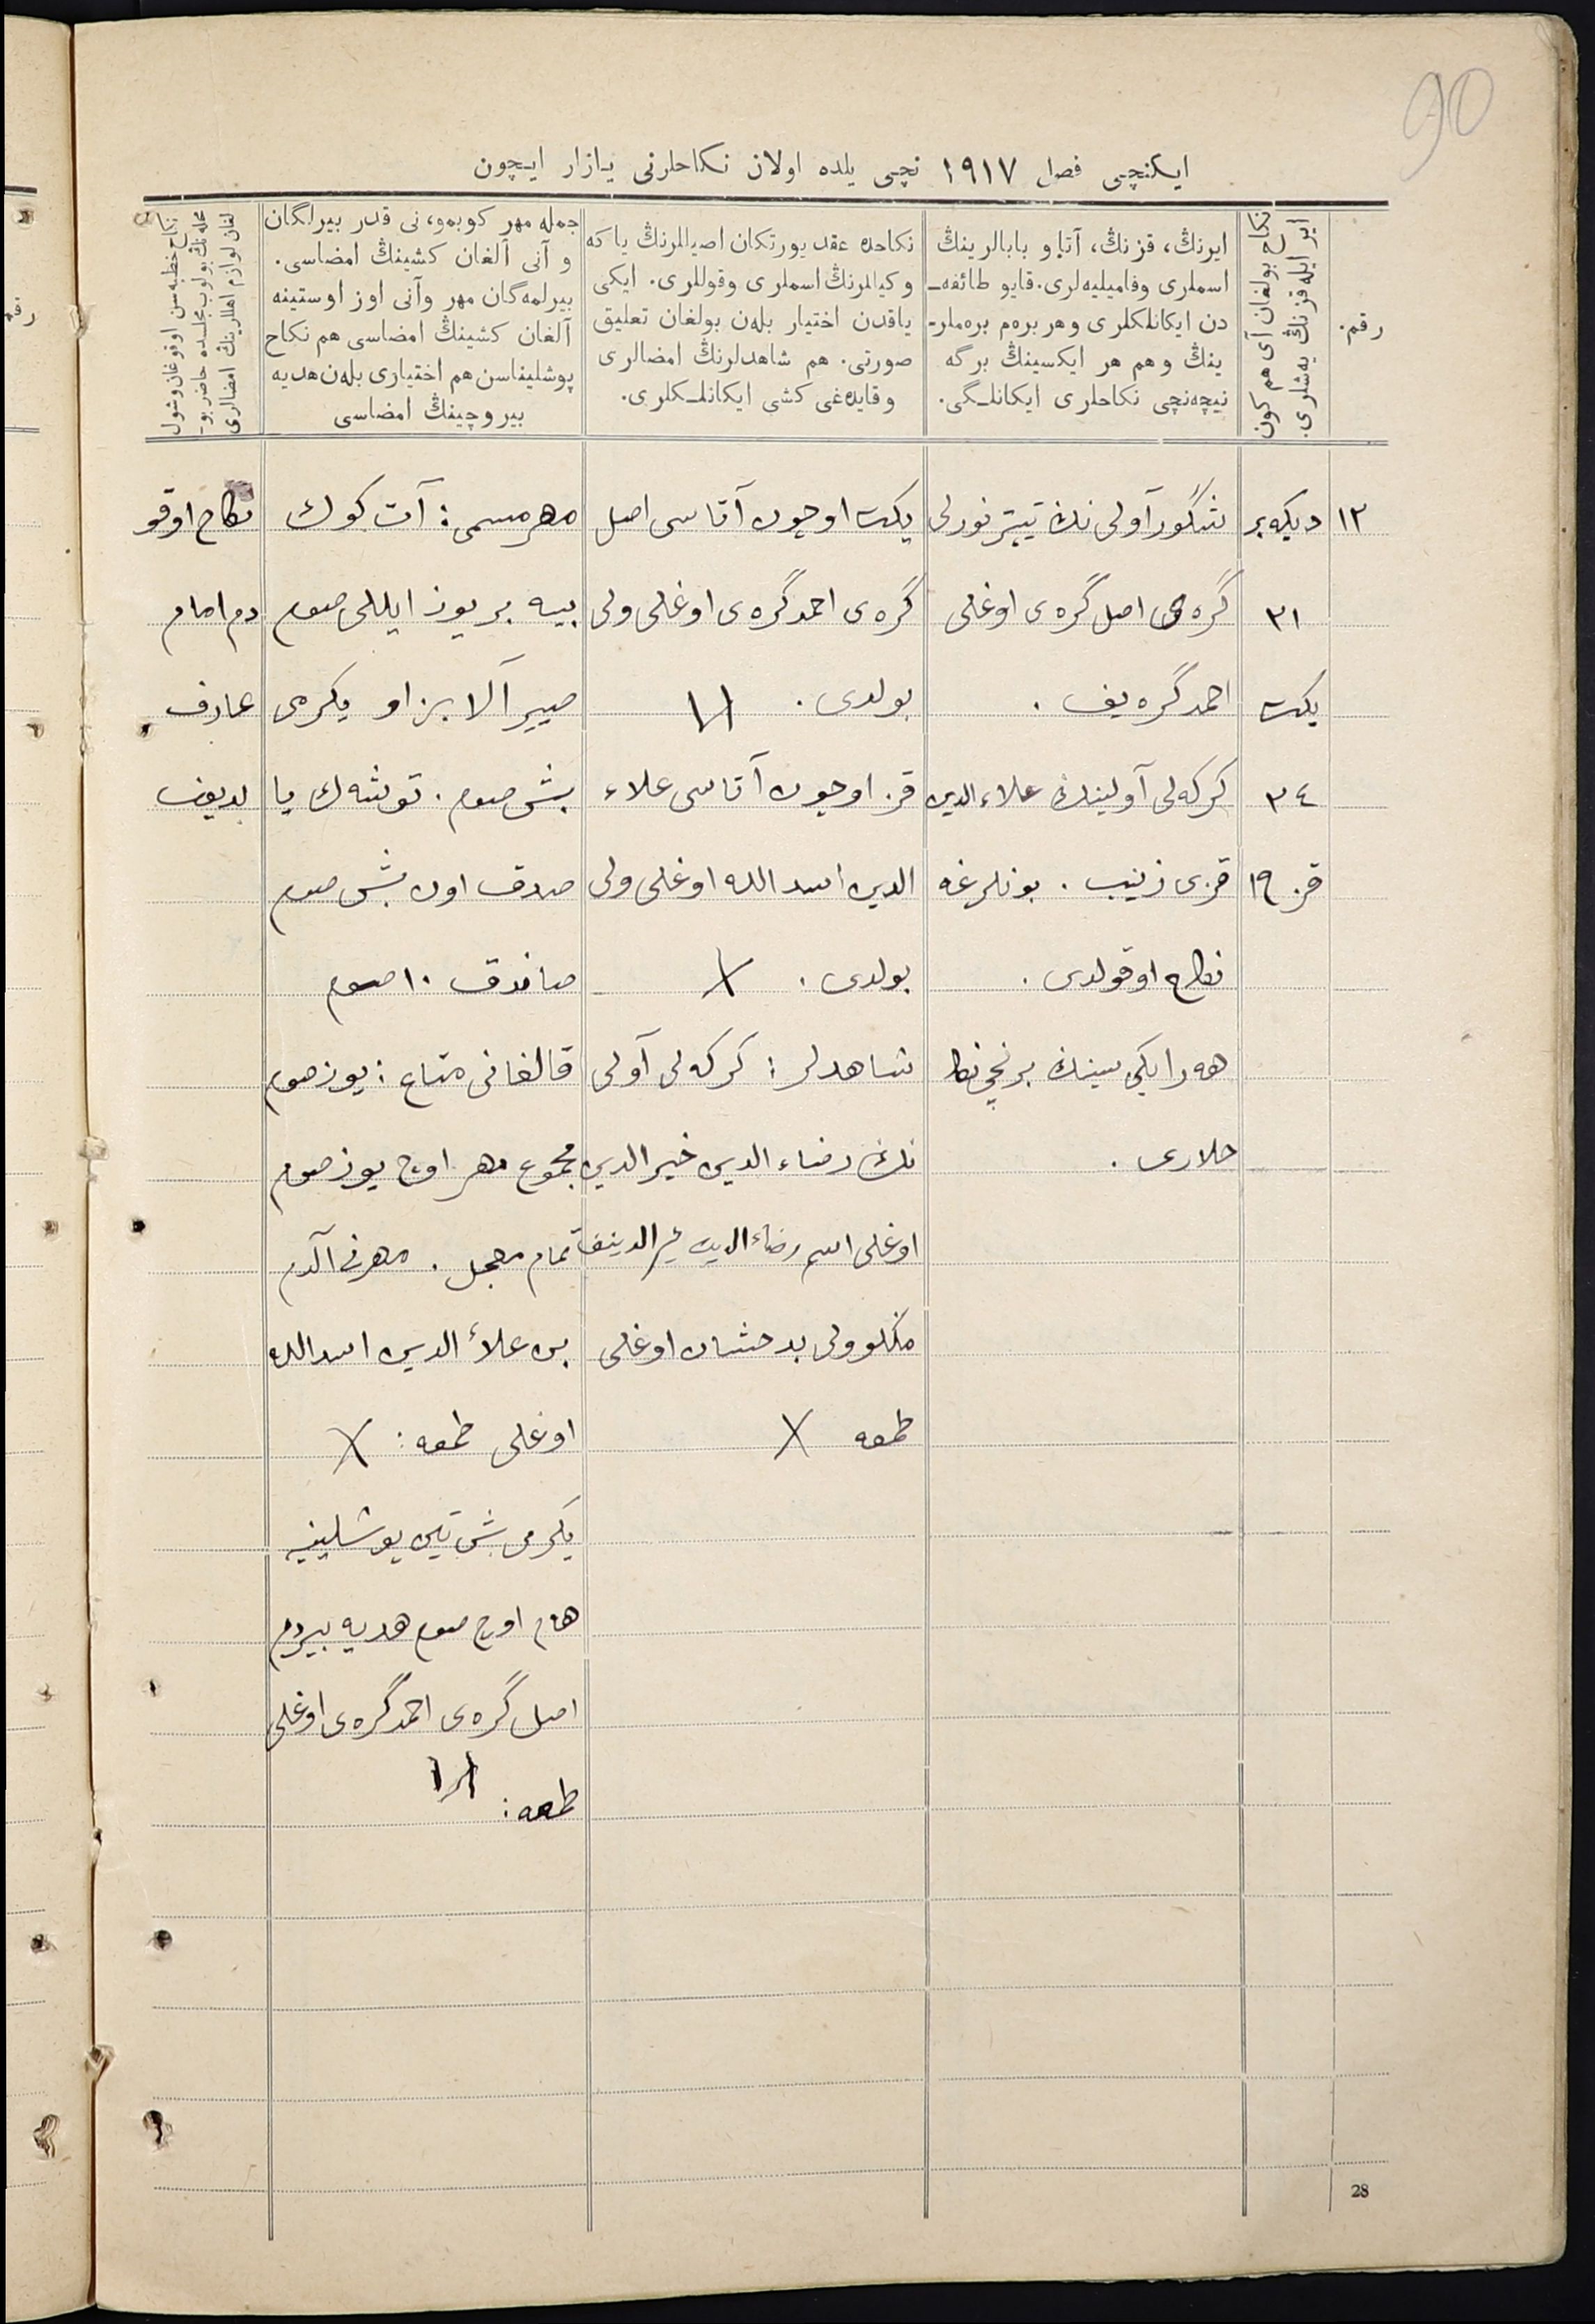 90
ایكنچی فصل ١٩١٧ نچی یلده اولان نكاحلرنی یازار ایچون
رقم.
نكاح بولغان آی هم كون
ایر ایله قزنڭ یه‌شلری.
ایرنڭ، قزنڭ، آتا و بابالرینڭ
اسملری وفامیلیه‌لری. قایو طائفه‌ـ
دن ایكانلكلری و هر بره‌م بره‌ملر-
ینڭ و هم هر ایكسینڭ برگه
نیچه‌نچی نكاحلری ایكانلـگی.
نكاحده عقد یورتكان اصیللرنڭ یا كه
وكیللرنڭ اسملری وقوللری. ایكی
یاقدن اختیار بله‌ن بولغان تعلیق
صورتی. هم شاهدلرنڭ امضالری
وقایده‌غی كشی ایكانلـكلری.
جمله مهر كوبمو، نی قدر بیرلگان
و آنی آلغان كشینڭ امضاسی.
بیرلمه‌گان مهر وآنی اوز اوستینه
آلغان كشینڭ امضاسی هم نكاح
پوشلیناسن هم اختیاری بله‌ن هدیه
بیروچینڭ امضاسی
نكاح خطبه‌سن اوقوغان وشول
محله‌نڭ بولوب مجلسده حاضر بو-
لغان لوازم اهللرینڭ امضالری
١٢
دیكه‌بر
٣١
یكت
٣٤
قز ١٩
شگور آولی نك تیپتر نورلی
گره‌ی اصل گره‌ی اوغلی
احمدگره‌یف .
كركه‌لی آولینك علاءالدین
قزی زینب . بونلرغه
نكاح اوقولدی .
هه‌ر ایكی سینك برنچی نكا
حلاری .
یكت اوچون آتاسی اصل
گره‌ی احمدگره‌ی اوغلی ولی
بولدی .
قز اوچون آتاسی علاء
الدین اسدالله اوغلی ولی
بولدی . X
شاهدلر : كركه‌لی آولی
نك رضاءالدین خیرالدین
اوغلی اسم رضاءالدین خیرالدینف
منكلوولی بدخشان اوغلی
طمعه X
مهر مسمی : آت كوك
بیه بر یوز ایللی صوم
صییر آلا بزاو یكرمی
بش صوم . توشه‌ك یا
صدق اون بش صوم
صاندق ١٠ صوم
قالغانی متاع : یوز صوم
مجموع مهر اوچ یوز صوم
تمام معجل . مهرنی آلدم
بن علاء الدین اسدالله
اوغلی طمعه : X
یكرمی بش تین پوشلینه
هام اوچ صوم هدیه بیردم
اصل گره‌ی احمدگره‌ی اوغلی
طمعه :
نكاح اوقو
دم امام
عارف
28